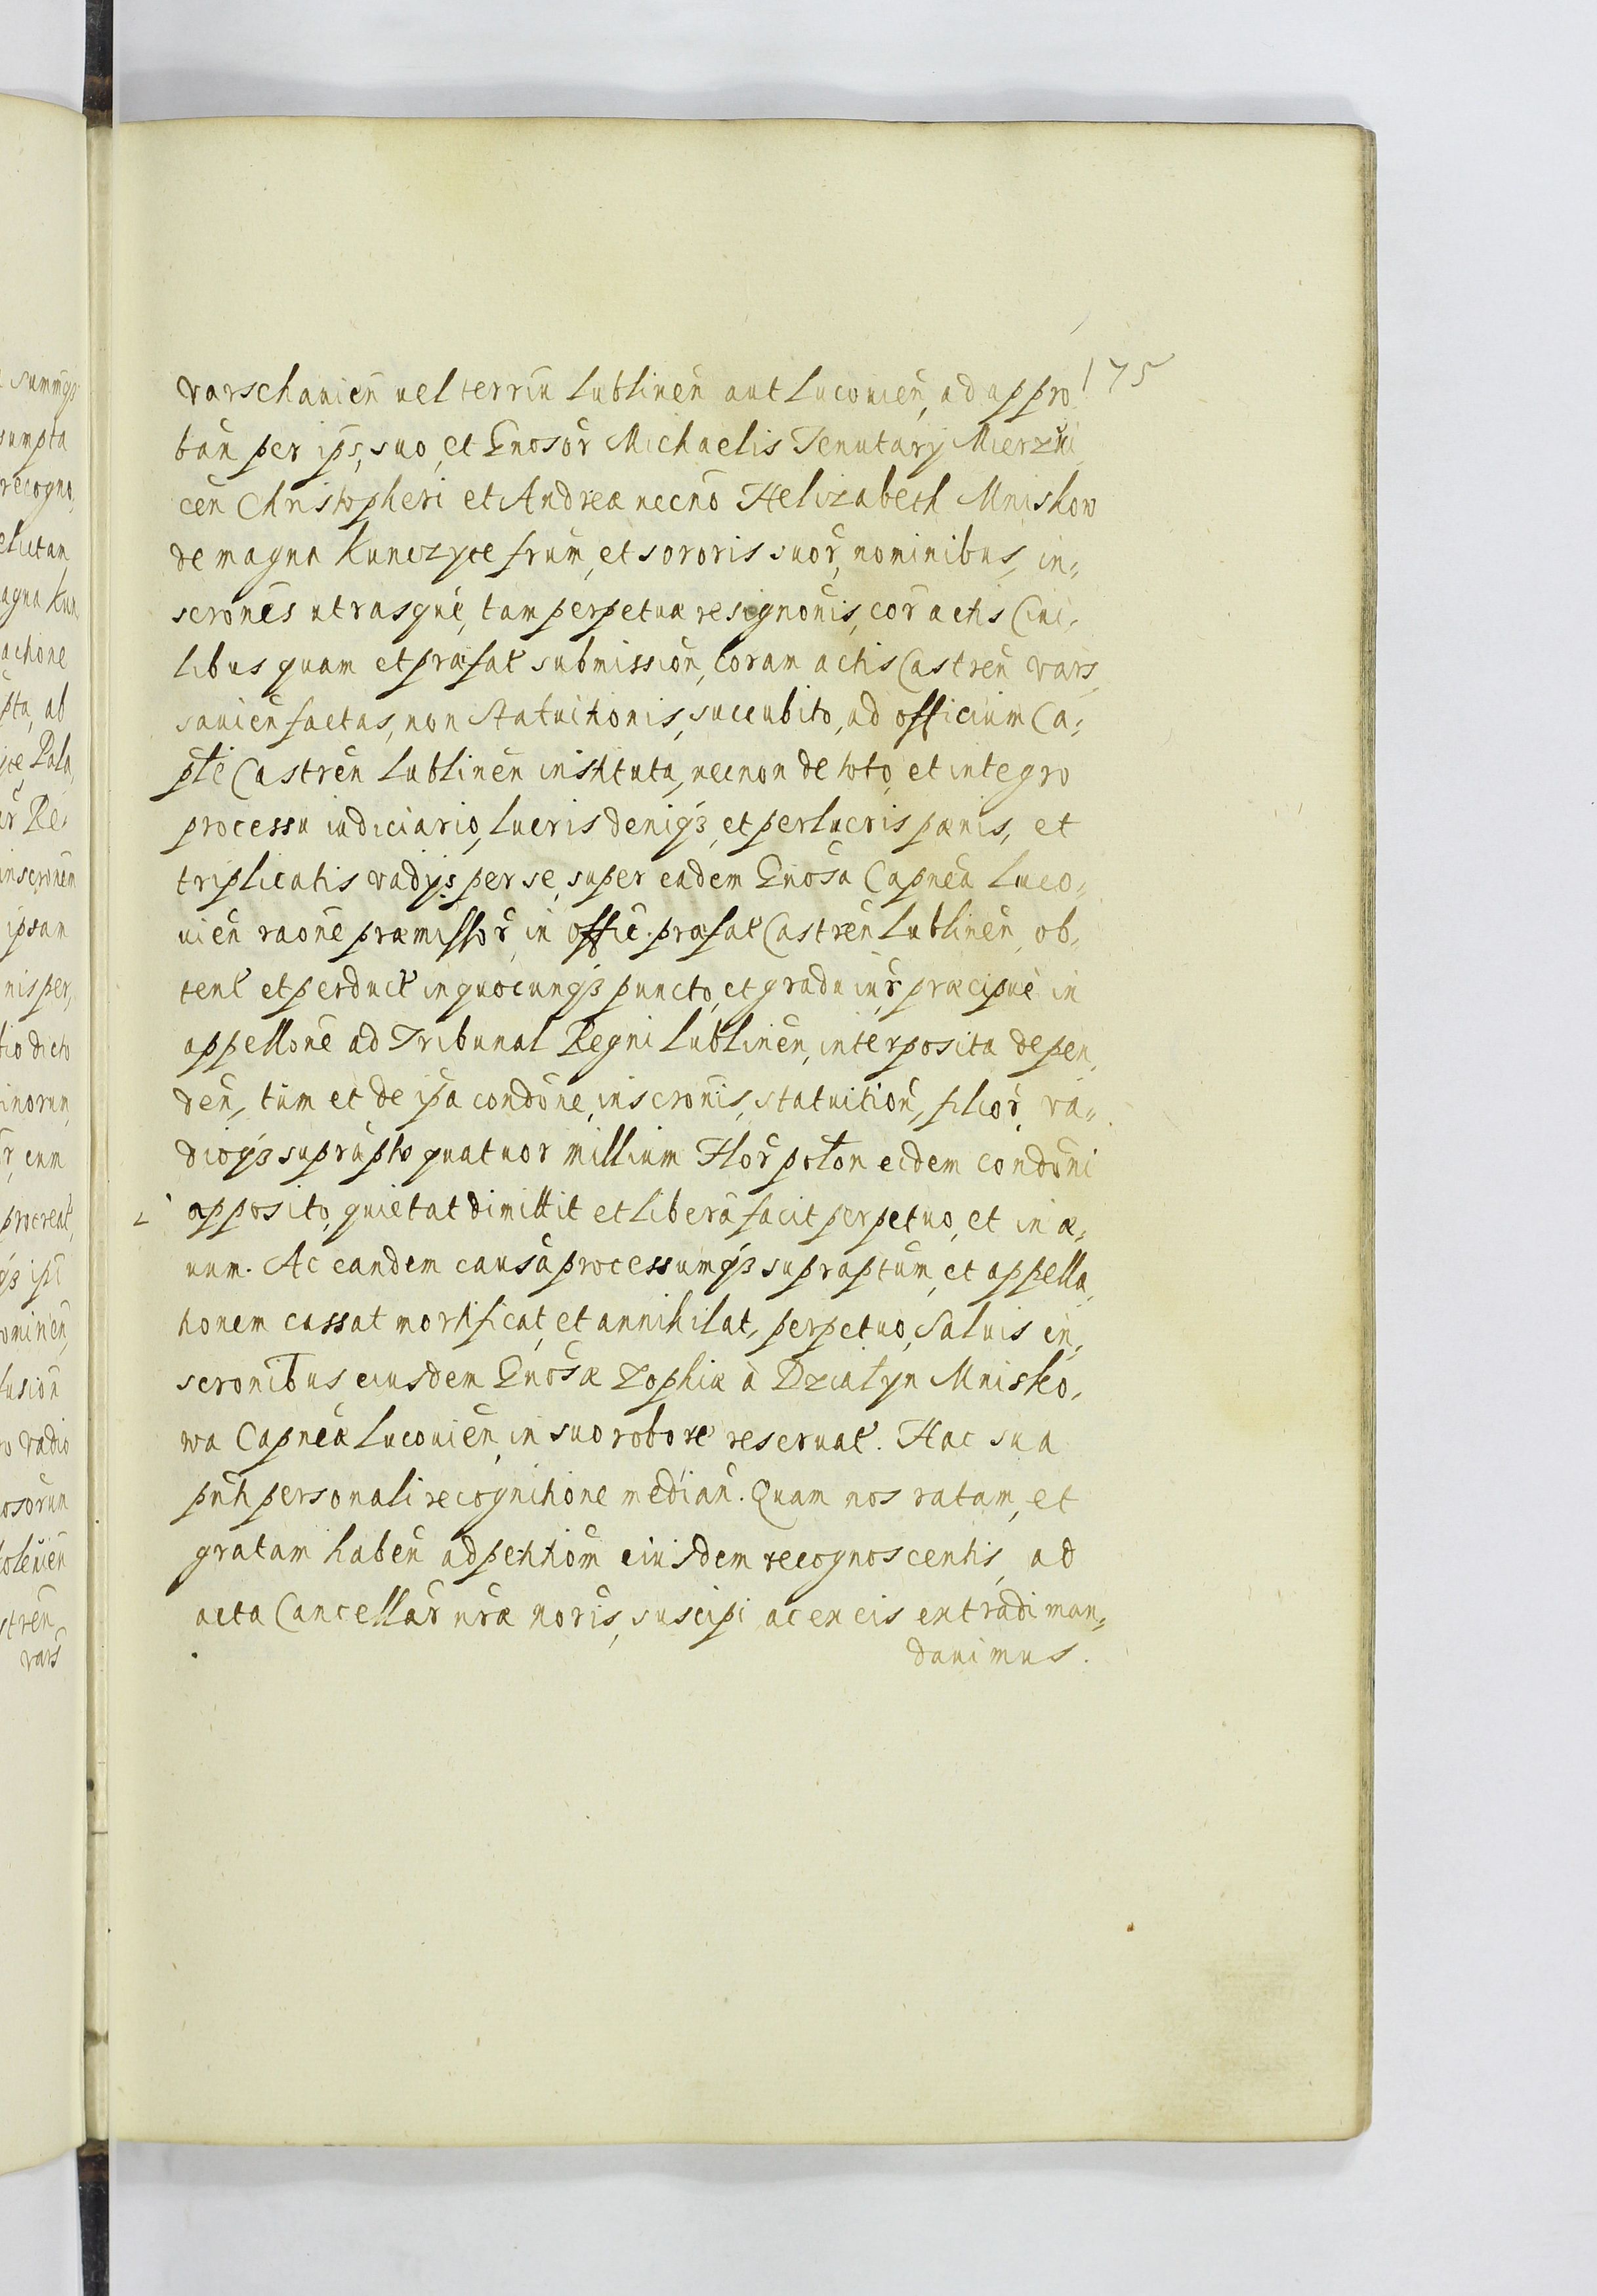 175
varschauien̄ uel terrēn Lublinen̄ aut Lucouien̄, ad appro
ban̄ per ips, suo, et Gnosor̄ Michaelis Tenutarÿ Mierzwi
cen̄ Christopheri et Andreæ necnō Helizabeth Mniskow
de magna Kunczyce frum, et sororis suor̄, nominibus, in„
scronēs utrasquè, tam perpetuæ resignonīs, cor̄ actis Ciui„
libus quam et præfat̄ submission̄, Coram actis Castren̄ vars
sauien̄ factas, non Statuitionis, succubito, ad officium Ca„
ptlē Castren̄ Lublinen̄ instituta, necnon de toto, et integro
processu iudiciario, lucris deniqꝫ, et perlucris pœnis, et
triplicatis vadÿs per se, super eadem Gnosā Capneā Luco„
uien̄ raonē præmissor̄, in offic̄. præfat̄ Castren̄ Lublinen̄, ob„
tent̄ et perduct̄ in quocunqꝫ puncto, et gradu iur̄, præcipuè in
appellonē ad Tribunal Regni Lublinen̄, interposita depen„
den̄, tūm et de ipā condonē, inscronīs, statuition̄, filior̄, va„
dioqꝫ suprāpto quatuor millium Flor̄ polōn eidem condonī
apposito, quietat dimittit et liberā facit perpetuo, et in æ„
uum. Ac eandem causā processumqꝫ supraptūm, et appella„
tionem cassat mortificat, et annihilat, perpetuo, Saluis in„
scronībus eiusdem Gnosæ Zophiæ à Dzialyn Mnisko„
wa Capneæ Lucouien̄, in suo robore reseruat̄. Hac sua
pn̄ti personali recognitione median̄. Quam nos ratam, et
gratam haben̄ ad petitiōm eiusdem recognoscentis, ad
acta Cancellar̄ nr̄æ norīs, suscipi ac en eis extradi man„
dauimus.